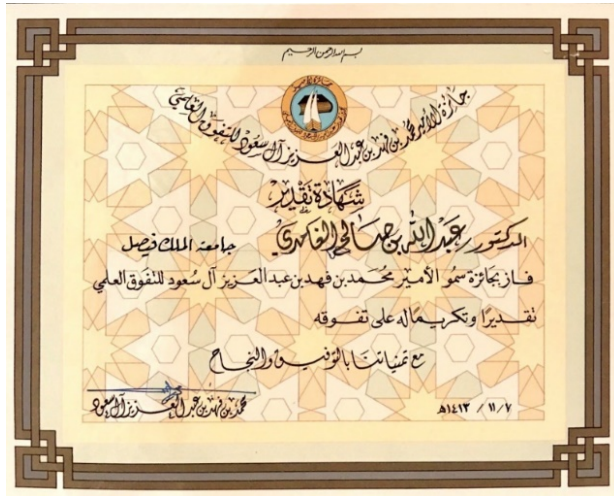 بسم الله الرحمن الرحيم
جائزة الأمير محمد بن فهد بن عبد العزيز آل سعود للتفوق العلمي
شهادة تقدير
الدكتور عبد الله بن صالح الغامدي جامعة الملك فيصل
فاز بجائزة سمو الأمير محمد بن فهد بن عبد العزيز آل سعود للتفوق العلمي
تقديرا وتكريما له على تفوقه
مع تمنياتنا بالتوفيق والنجاح
١٤١٣ / ١١ / ٧ هـ
محمد بن فهد بن عبد العزيز آل سعود